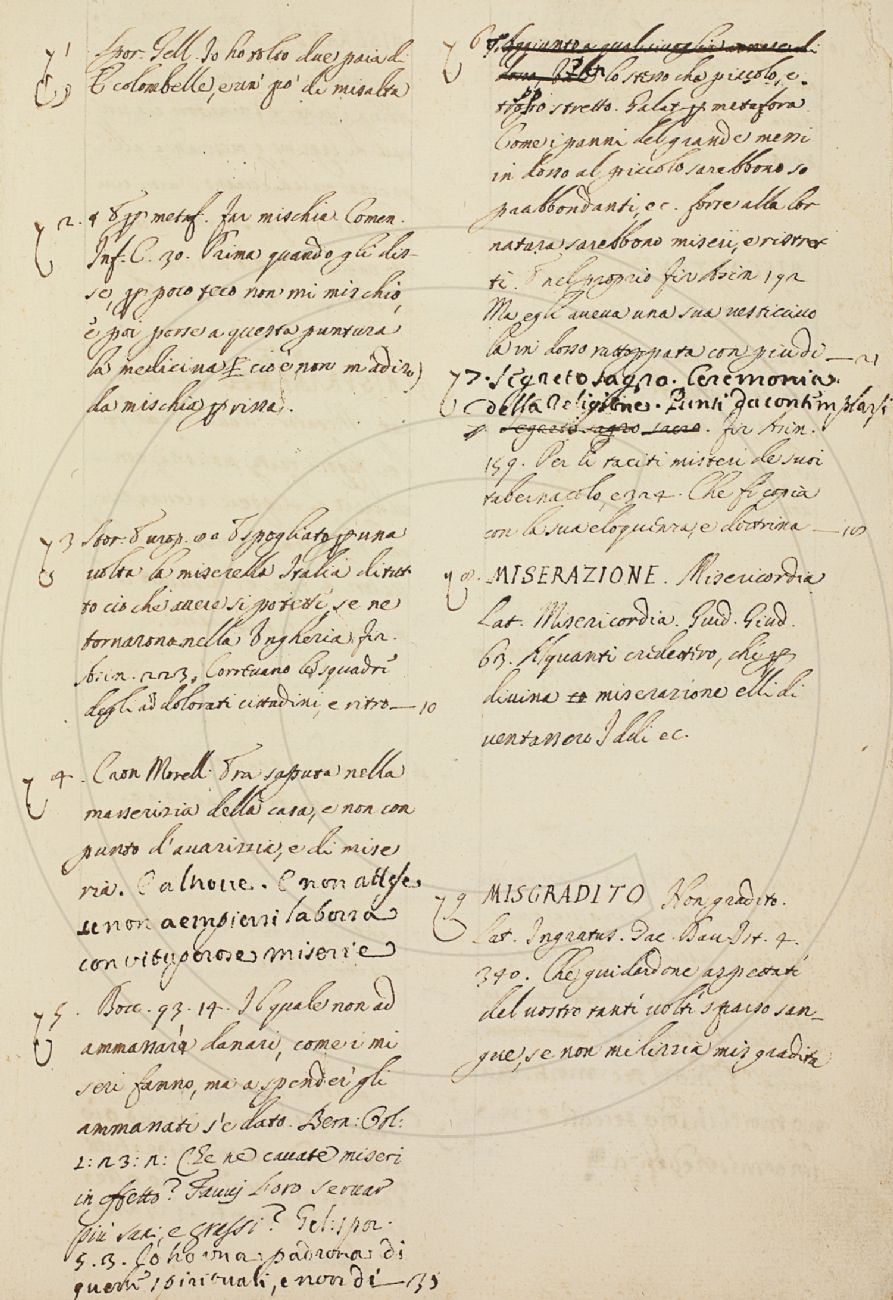 1 Spor. Gell. Io ho tolto due paia di
colombelle, e un' po' di misalta
2. ¶ E p metaf. Far mischia. Comen.
Inf. C. 30. Prima quando gli dis-
se, p poco teco non mi mischio,
e poi porse a questa puntura
la medicina
da mischia p rissa.
3 Stor. Europ. E spogliato p una
volta la miserella Italia di tut
to ciò che avere si potette, se ne
tornarono nella Ungheria. Fir.
Asin. 223. Correvano le squadre
degli addolorati cittadini, e ritro— 10
4. Cron Morell. Era saputa nella
masserizia della casa, e non con
punto d'avarizia, e di mise
ria. E altrove. E non attese
se non a empiersi la borsa
con vituperose miserie
5. Bocc. 93. 14. Il quale non ad
ammassar danari, come i mi
seri fanno, ma a spender gli
ammassati s'è dato. Bern: Orl:
2: 23: 2: Che ne cavate miseri
in effetto?
più sani, e grassi? Gel: spor.
5. 3. Io ho una padrona di
queste spirituali, e non di — 35
6
lo stesso che piccolo, e
troppo stretto. Galat. p metafora
Come i panni del grande messi
in dosso al piccolo sarebbono so
prabbondanti, ec. forse alla lor
natura sarebbono miseri, e ristret
ti. E nel proprio Fir. Asin 192
Ma egli aveva una sua vesticciuo
la in dosso rattoppata con più di — 21
7. Segreto sagro. Ceremonia
della Religione. Punti da contemplarsi
segreto sagro sacro. Fir Asin.
159. Per li taciti misteri de suoi
tabernacolo, e 324. Che fi copia
con la sua eloquenza, e dottrina — 10
8. MISERAZIONE. Misericordia
Lat. Misericordia. Guid. Giud.
63. Alquanti credettro, che p
divina miserazione elli di
ventassero Idoli ec.
9 MISGRADITO Non gradito.
Lat. Ingratus. Dav. Ist. 4.
340. Che guidardone aspettati
del vostro tante volte sparso san-
gue, se non milizia misgradita